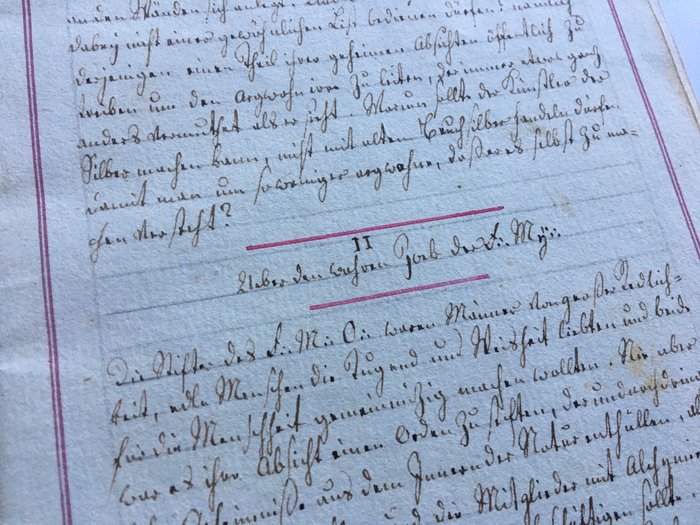 an den Ständen sich
dabey nicht eines gewöhnlichen List bedienen dürfen? nämlich
derjenigen einen Theil ihrer geheimen Absichten öffentlich zu
treiben um den Argwohn irre zu leiten, der immer etwas
anders vermuthet als er sieht. Warum sollte der Künstler der
Silber machen kann, nicht mit altem Bruchsilber handeln dürfen
damit man um soweniger argwohne, daß er es selbst zu ma-
chen versteht?
II
Ueber den wahren Zwek der F:. My:.
Die Stifter des F:. M: O:. waren Männer von großer Redlich-
keit, edle Menschen die Tugend und Weisheit liebten und beide
für die Menschheit gemeinnüzig machen wollten. Nie aber
war es ihre Absicht einen Orden zu stiften, der und
Geheimniße aus dem Innern der Natur enthüllen,
und die Mitglieder mit Alchymie
sollte